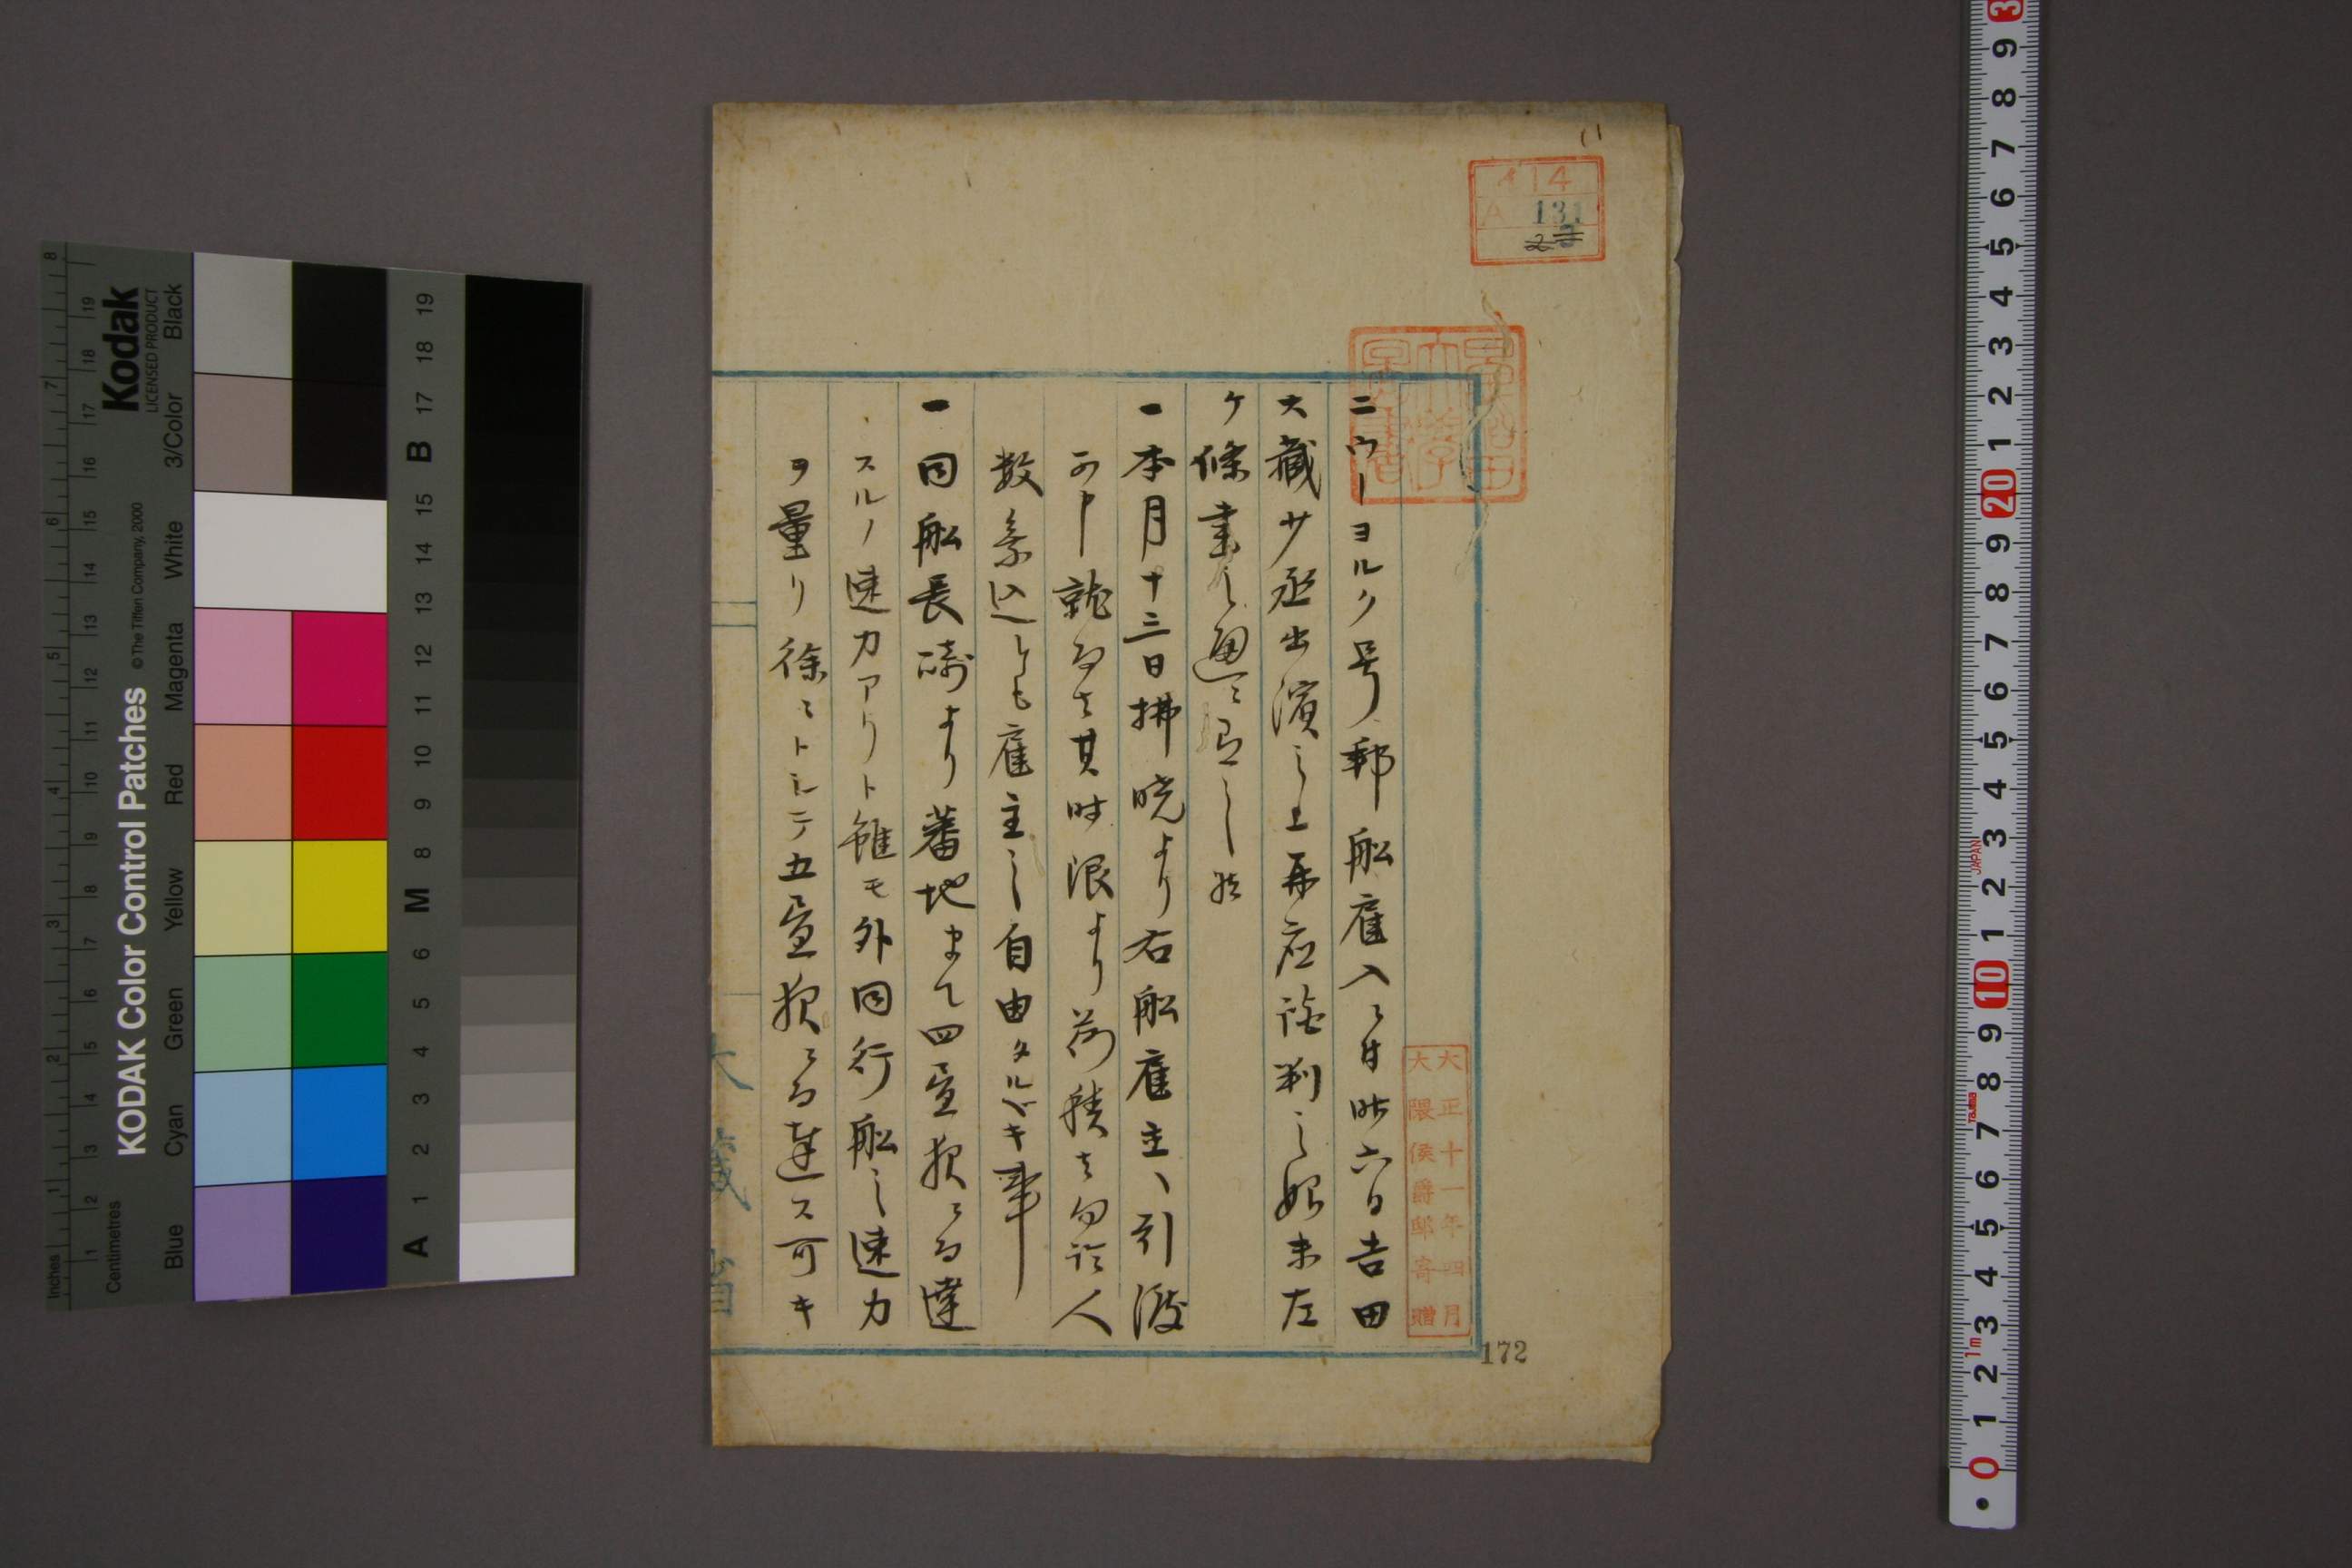 ニウーヨルク号郵船雇入ニ付昨六日吉田
大藏少丞出濱之上再應談判之始末左
ケ條書之通ニ有之候
一本月十三日拂暁より右船雇主ヘ引渡
可申就而者其時限より荷積者勿論人
数乗込とも雇主之自由タルベキ事
一同船長崎より蕃地まて四昼夜ニ而達
スルノ速力アリト雖モ外同行船之速力
ヲ量リ徐ミトシテ五昼夜ニ而達ス可キ
大藏省
大正十一年四月
大隈侯爵邸寄贈
早稲田大學圖書
14
A 131
172
KODAK Color Control Patches
©The Tiffen Company, 2000
Kodak
LICENSED PRODUCT
Inches
Centimetres
Blue Cyan Green Yellow Red Magenta White 3/Color Black
A 1 2 3 4 5 6 M 8 9 10 11 12 13 14 15 B 17 18 19
JAPAN
1m